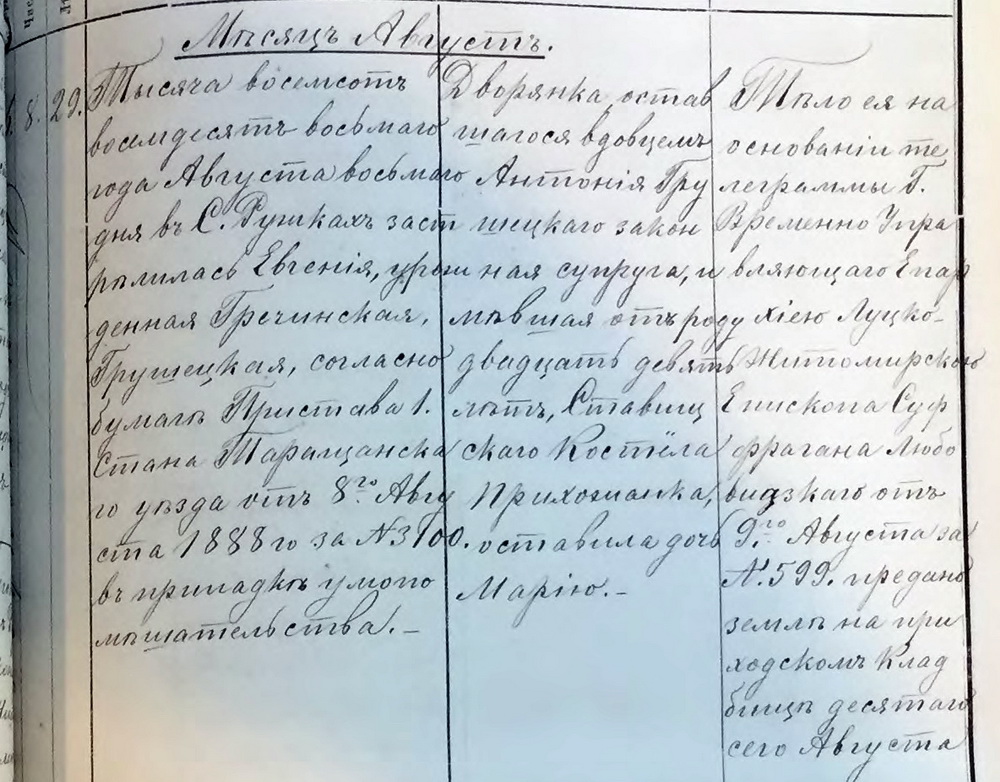 Мѣсяцъ Августъ.
8. 29.
Тысяча восемсотъ
восемдесятъ восьмаго
года Августа восьмаго
дня въ С. Рушкахъ заст
рѣлилась Евгенія, урож
денная Гречинская,
Грушецкая, согласно
бумагѣ Пристава 1.
Стана Таращанска
го уѣзда отъ 8го Авгу
ста 1888го за N3100.
въ припадкѣ умопо
мѣшательства.-
Дворянка, остав
шагося вдовцемъ
Антонія Гру
шецкаго закон
ная супруга, и
мѣвшая отъ роду
двадцать девять
лѣтъ, Ставищ
скаго Костёла
Прихожанка,
оставила дочь
Марію.-
Тѣло ея на
основаніи те
леграммы Г.
Временно Упра
вляющаго Епар
хіею Луцко-
Житомирскою
Епископа Суф
фрагана Любо
видзкаго отъ
9го Августа за
N.599. предано
землѣ на при
ходскомъ Клад
бищѣ десятаго
сего Августа